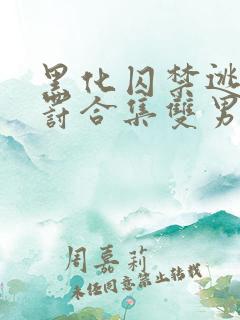 黑化囚禁逃
罰合集雙男
周嘉莉
未任同意禁止转载